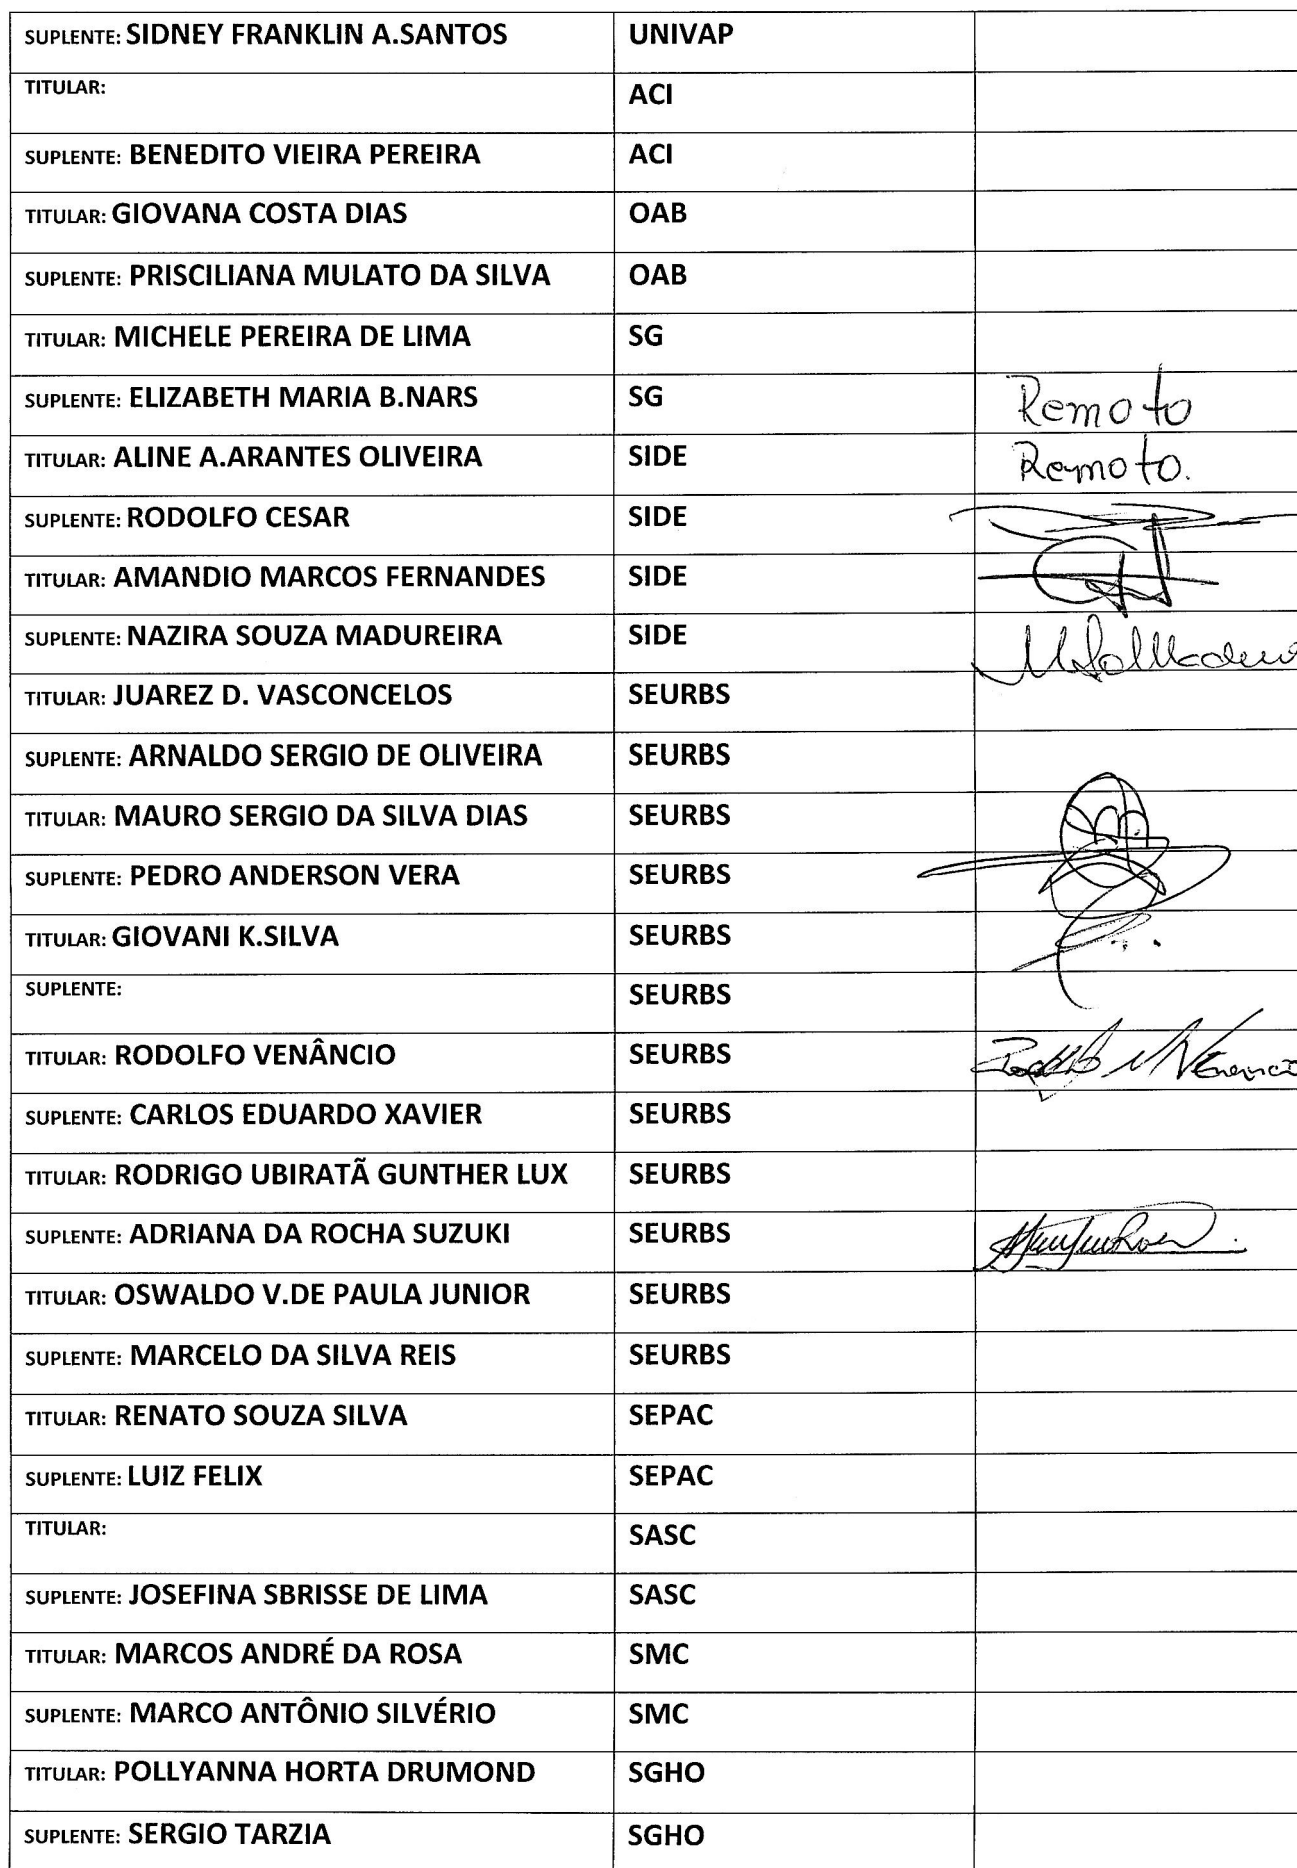 SUPLENTE: SIDNEY FRANKLIN A.SANTOS UNIVAP
TITULAR: ACI
SUPLENTE: BENEDITO VIEIRA PEREIRA ACI
TITULAR: GIOVANA COSTA DIAS OAB
SUPLENTE: PRISCILIANA MULATO DA SILVA OAB
TITULAR: MICHELE PEREIRA DE LIMA SG
SUPLENTE: ELIZABETH MARIA B.NARS SG Remoto
TITULAR: ALINE A.ARANTES OLIVEIRA SIDE Remoto.
SUPLENTE: RODOLFO CESAR SIDE
TITULAR: AMANDIO MARCOS FERNANDES SIDE
SUPLENTE: NAZIRA SOUZA MADUREIRA SIDE
TITULAR: JUAREZ D. VASCONCELOS SEURBS
SUPLENTE: ARNALDO SERGIO DE OLIVEIRA SEURBS
TITULAR: MAURO SERGIO DA SILVA DIAS SEURBS
SUPLENTE: PEDRO ANDERSON VERA SEURBS
TITULAR: GIOVANI K.SILVA SEURBS
SUPLENTE: SEURBS
TITULAR: RODOLFO VENÂNCIO SEURBS
SUPLENTE: CARLOS EDUARDO XAVIER SEURBS
TITULAR: RODRIGO UBIRATÃ GUNTHER LUX SEURBS
SUPLENTE: ADRIANA DA ROCHA SUZUKI SEURBS
TITULAR: OSWALDO V.DE PAULA JUNIOR SEURBS
SUPLENTE: MARCELO DA SILVA REIS SEURBS
TITULAR: RENATO SOUZA SILVA SEPAC
SUPLENTE: LUIZ FELIX SEPAC
TITULAR: SASC
SUPLENTE: JOSEFINA SBRISSE DE LIMA SASC
TITULAR: MARCOS ANDRÉ DA ROSA SMC
SUPLENTE: MARCO ANTÔNIO SILVÉRIO SMC
TITULAR: POLLYANNA HORTA DRUMOND SGHO
SUPLENTE: SERGIO TARZIA SGHO